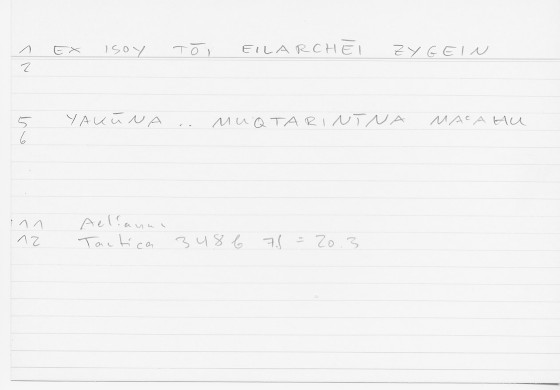 1 EX ISOY TŌI EILARCHĒI ZYGEIN
2
5 YAKŪNA .. MUQTARINĪNA MAʿAHU
6
11 Aelianus
12 Tactica 348 6 78 = 20.3